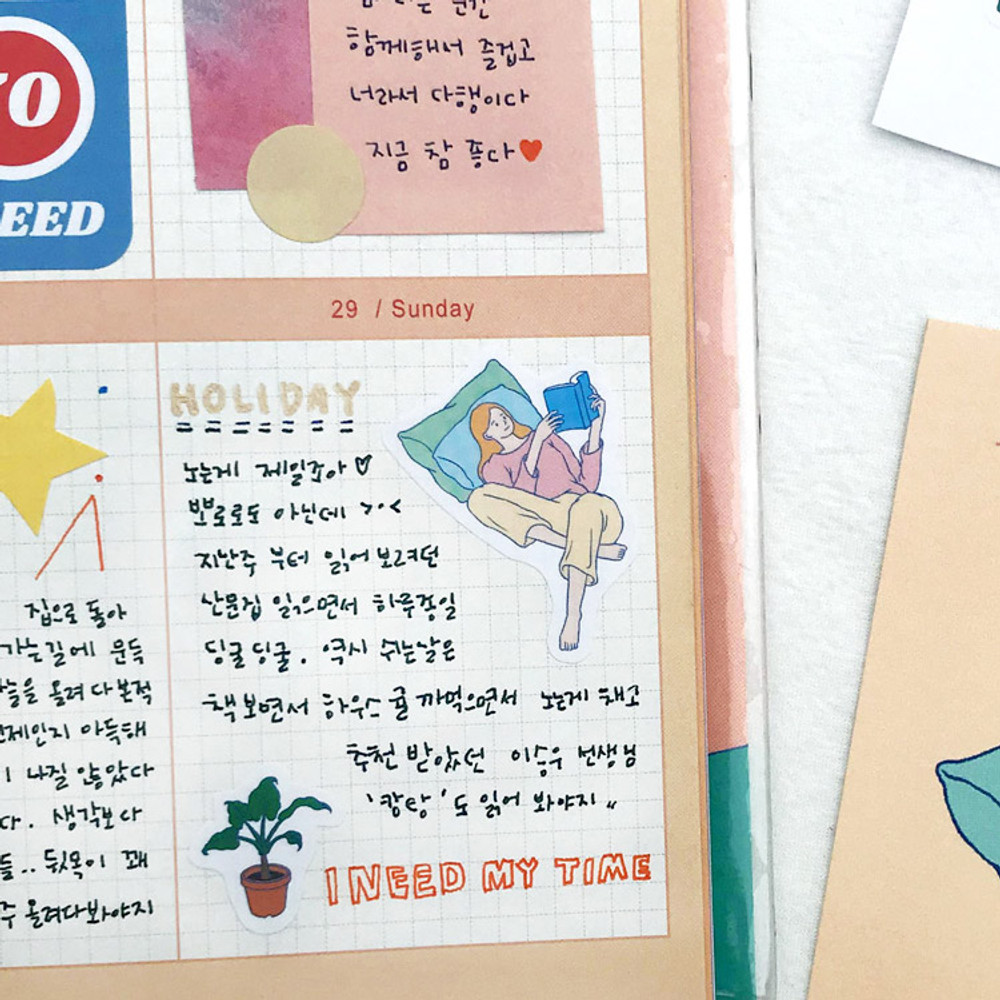 YO
EED
함께해서 즐겁고
너라서 다행이다
지금 참 좋다♥
29 / Sunday
집으로 돌아
가는길에 문득
늘을 올려다본적
언제인지 아득해
나질 않았다
다. 생각보다
들.. 뒷목이 꽤
주 올려다봐야지
HOLIDAY
노는게 제일좋아♡
뽀로로도 아닌데 >·<
지난주 부터 읽어보려던
산문집 읽으면서 하루종일
딩굴딩굴. 역시 쉬는날은
책보면서 하우스 귤 까먹으면서 노는게 채고
추천 받았던 이승우 선생님
'캉탕'도 읽어 봐야지 〃
I NEED MY TIME